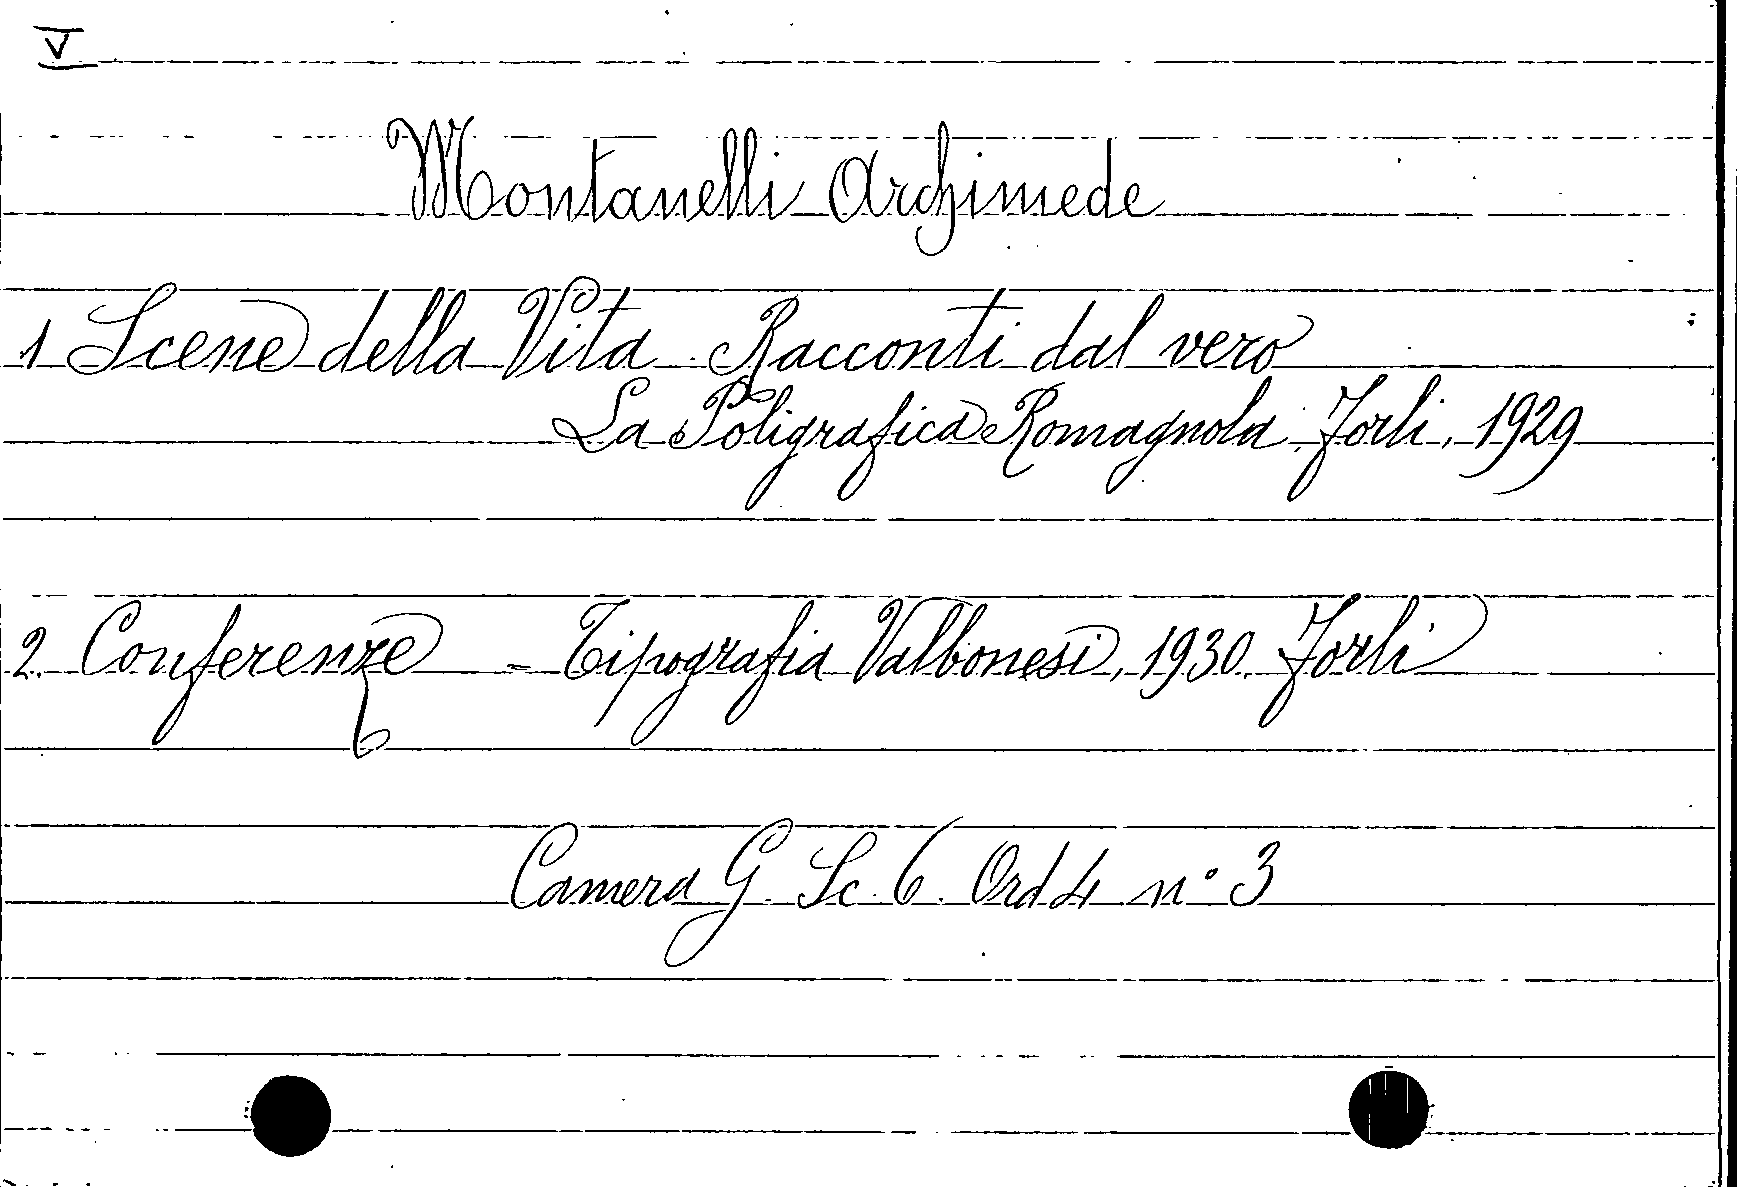 V
Montanelli Archimede
1 Scene della Vita - Racconti dal vero
La Poligrafica Romagnola. Forli, 1929
2. Conferenze - Tipografia Valbonesi, 1930. Forli
Camera G. Sc. 6. Ord 4 n° 3